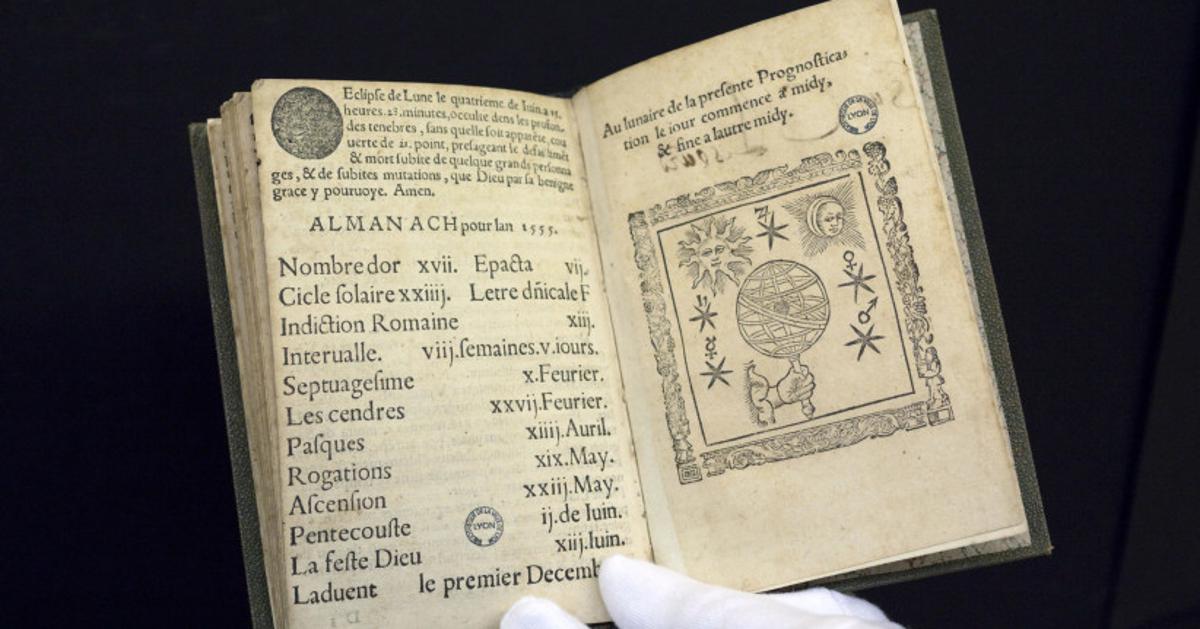 Eclipse de Lune le quatrieme de Iuin a 15.
heures. 23. minutes, occulte dens les profon-
des tenebres, sans quelle soit apparẽte, cou
uerte de 21. point, presageant le
& mort subite de quelque grands personna
ges, & de subites mutations, que Dieu par sa benigne
grace y pouruoye. Amen.
ALMANACH pour lan 1555.
Nombre dor xvii. Epacta vij.
Cicle solaire xxiiij. Letre dñicale F
Indiction Romaine xiij.
Interualle. viij. semaines. v. iours.
Septuagesime x. Feurier.
Les cendres xxvij. Feurier.
Pasques xiiij. Auril.
Rogations xix. May.
Ascension xxiij. May.
Pentecouste ij. de Iuin.
La feste Dieu xiij. Iuin.
Laduent le premier Decemb
LYON
Au lunaire de la presente Prognostica-
tion le iour commence a midy,
& fine a lautre midy.
LYON